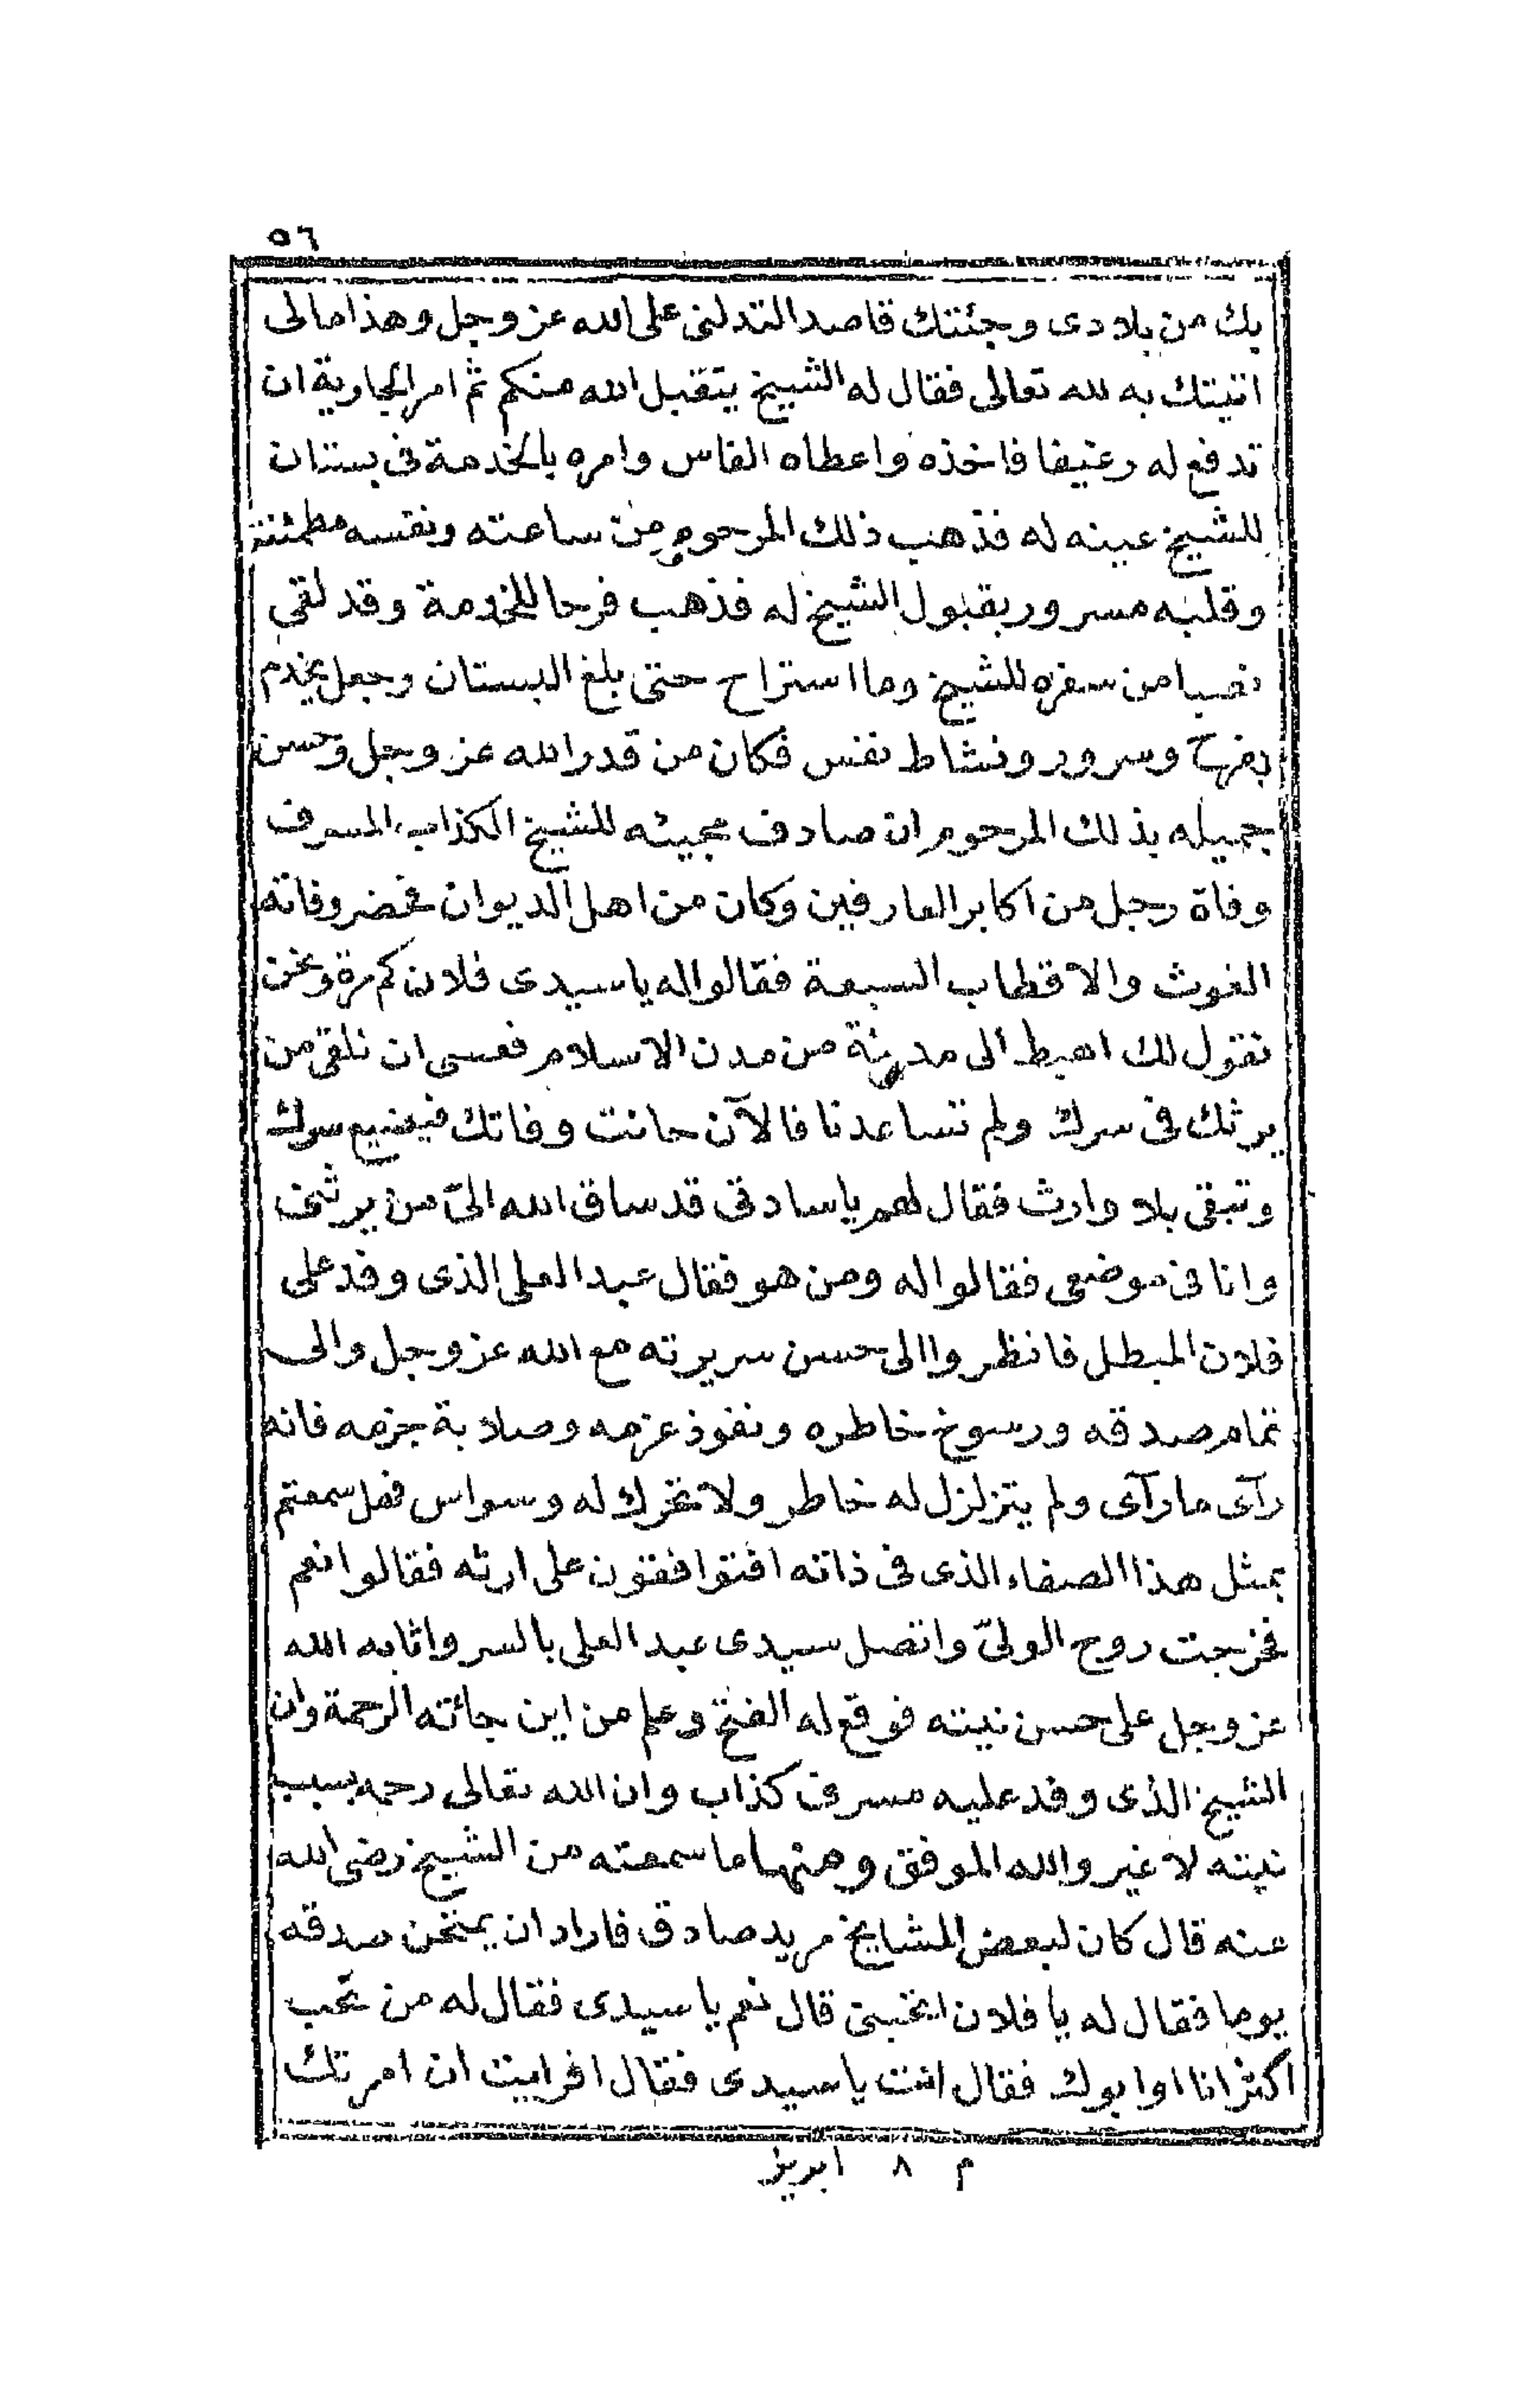 ٥٦
بك من بلادى وجئتك قاصدا لتدلنى على الله عز وجل وهذا مالى
اتيتك به لله تعالى فقال له الشيخ يتقبل الله منكم ثم امر الجارية ان
تدفع له رغيفا فاخذه واعطاه الفاس وامره بالخدمة فى بستان
للشيخ عينه له فذهب ذلك المرحوم من ساعته ونفسه مطمئنة
وقلبه مسرور بقبول الشيخ له فذهب فرحا للخدمة وقد لقى
نصبا من سفره للشيخ وما استراح حتى بلغ البستان وجعل يخدم
بفرح وسرور ونشاط نفس فكان من قدر الله عز وجل وحسن
جميله بذلك المرحوم ان صادف مجيئه للشيخ الكذاب المسرف
وفاة رجل من اكابر العارفين وكان من اهل الديوان فحضر وفاته
الغوث والاقطاب السبعة فقالوا له يا سيدى فلان كم مرة ونحن
نقول لك اهبط الى مدينة من مدن الاسلام فعسى ان تلقى من
يرثك فى سرك ولم تساعدنا فالآن حانت وفاتك فيضيع سرك
وتبقى بلا وارث فقال لهم يا سادتى قد ساق الله الىّ من يرثنى
وانا فى موضعى فقالوا له ومن هو فقال عبد العلى الذى وفد على
فلان المبطل فانظروا الى حسن سريرته مع الله عز وجل والى
تمام صدقه ورسوخ خاطره ونفوذ عزمه وصلابة جزمه فانه
رآى ما رآى ولم يتزلزل له خاطر ولا تحرك له وسواس فهل سمعتم
بمثل هذا الصفاء الذى فى ذاته افتوافقون على ارثه فقالوا نعم
فخرجت روح الولىّ واتصل سيدى عبد العلى بالسر واثابه الله
عز وجل على حسن نيته فوقع له الفتح وعلم من اين جائته الرحمة وان
الشيخ الذى وفد عليه مسرف كذاب وان الله تعالى رحمه بسبب
نيته لا غير والله الموفق ومنها ما سمعته من الشيخ رضى الله
عنه قال كان لبعض المشايخ مريد صادق فاراد ان يمتحن صدقه
يوما فقال له يا فلان اتحبنى قال نعم يا سيدى فقال له من تحب
اكثر انا او ابوك فقال انت يا سيدى فقال افرايت ان امرتك
م ٨ ابريز